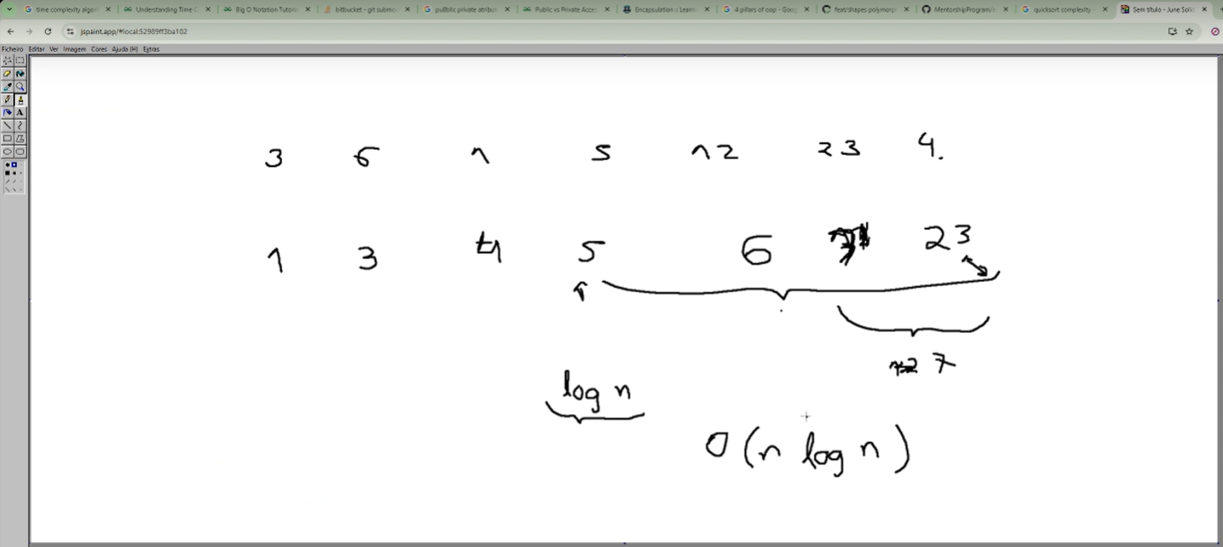 time complexity algor
Understanding Time C
Big O Notation Tutori
bitbucket - git submo
public private atribut
Public vs Private Acce
Encapsulation : Learn
4 pillars of oop - Goo
feat/shapes polymorp
MentorshipProgram/
quicksort complexity
Sem título - June Solic
jspaint.app/#local:52989ff3ba102
Ficheiro Editar Ver Imagem Cores Ajuda (H) Extras
3 6 1 5 12 23 4.
1 3 4 5 6 23
7
log n
O (n log n)